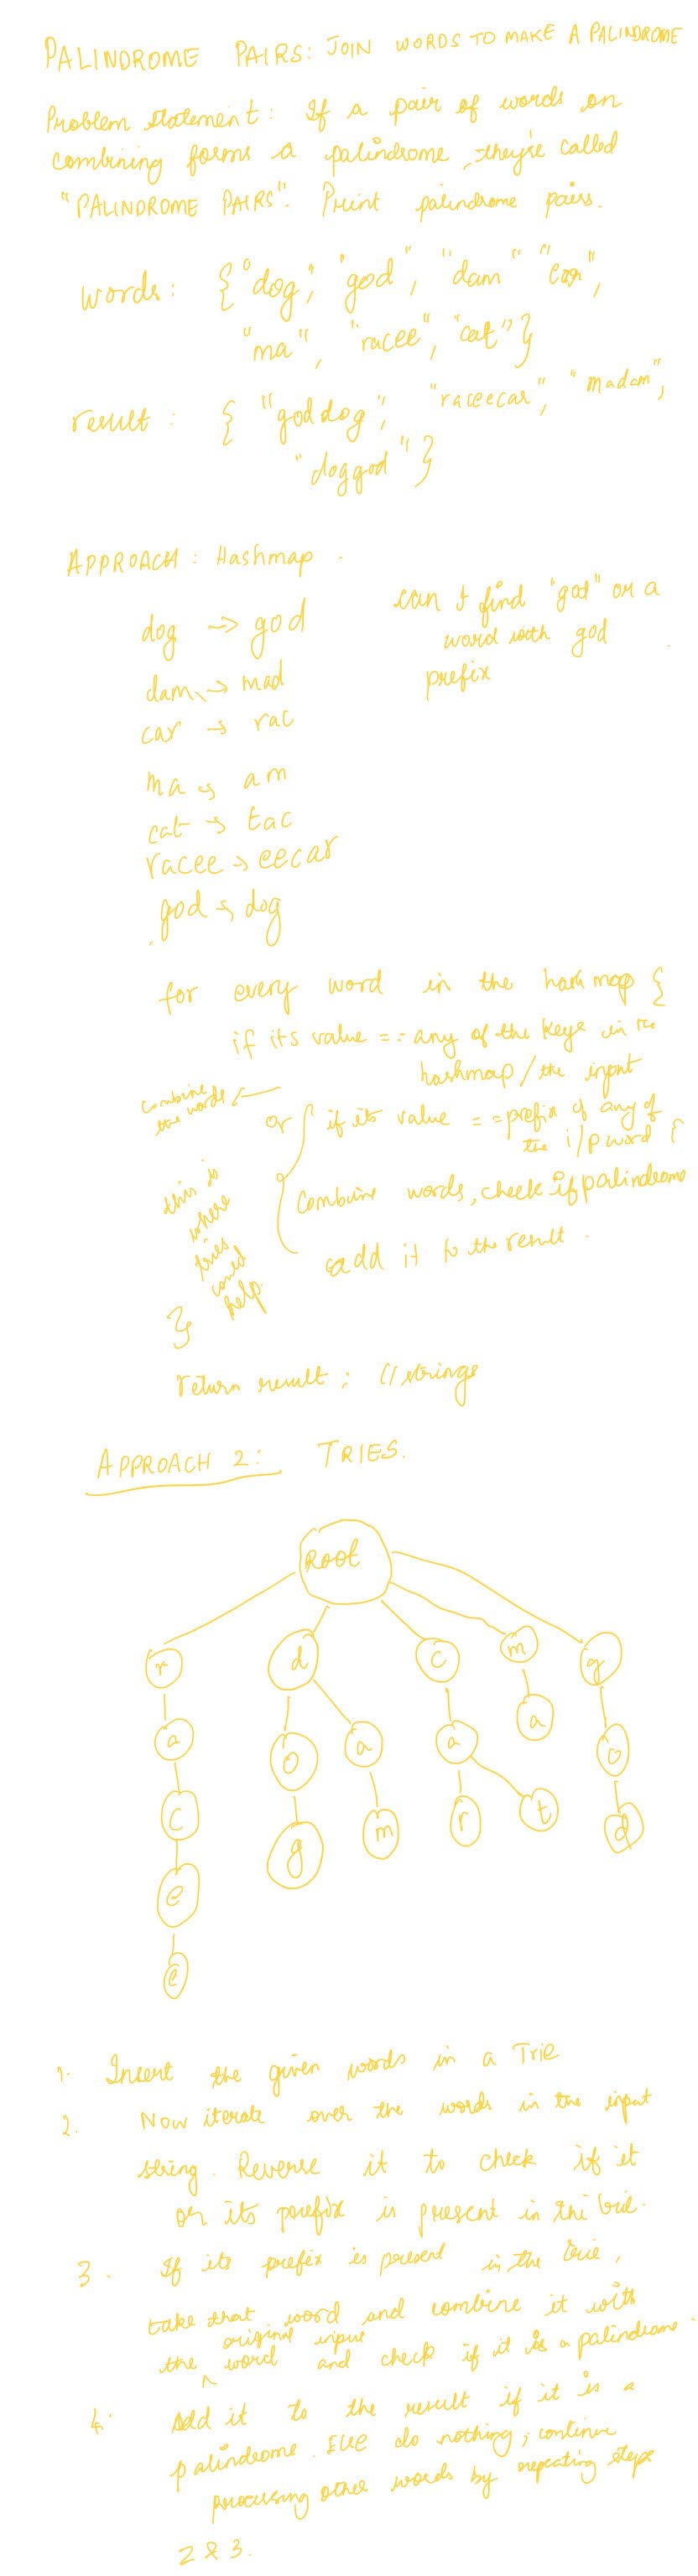 PALINDROME PAIRS: JOIN WORDS TO MAKE A PALINDROME
Problem statement: If a pair of words on
combining forms a palindrome, they're called
"PALINDROME PAIRS". Print palindrome pairs.
words: {"dog", "god", "dam" "car",
"ma", "racee", "cat"}
result: {"goddog", "raceecar", "madam",
"doggod"}
APPROACH: Hashmap.
dog -> god
can I find "god" or a
word with god
prefix
dam -> mad
car -> rac
ma -> am
cat -> tac
racee -> eecar
god -> dog
for every word in the hash map {
if its value == any of the keys in the
hashmap / the input
combine
the words
or if its value == prefix of any of
the i/p word {
Combine words, check if palindrome
& add it to the result.
this is
where
tries
could
help.
}
return result; // strings
APPROACH 2: TRIES.
Root
r d c m g
a o a a a o
c g m r t d
e
e
1. Insert the given words in a Trie
2. Now iterate over the words in the input
string. Reverse it to check if it
or its prefix is present in the trie.
3. If its prefix is present in the trie,
take that word and combine it with
original input
the ^ word and check if it is a palindrome.
4. Add it to the result if it is a
palindrome. Else do nothing, continue
processing other words by repeating steps
2 & 3.